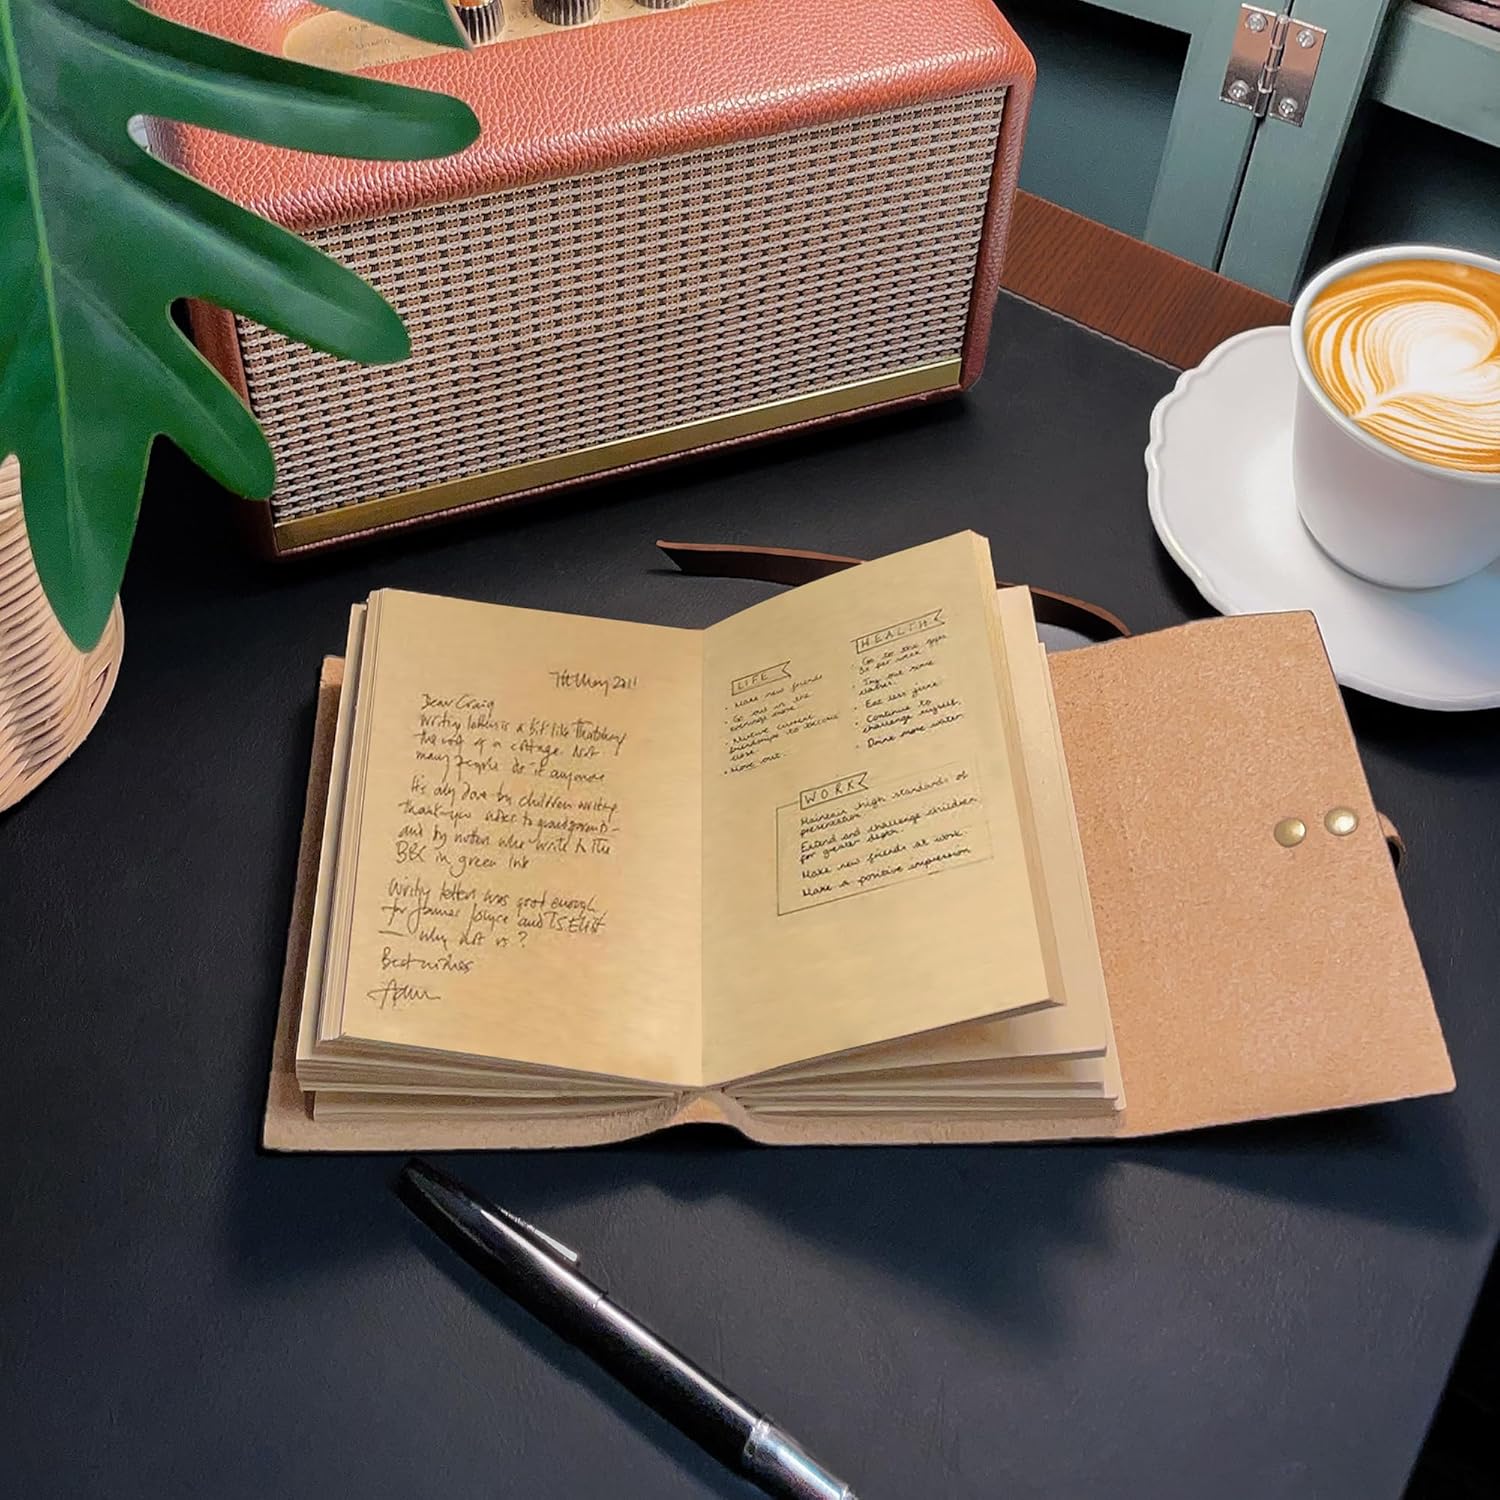 7th May 2011
Dear Craig
Writing letters is a bit like thatching
the roof of a cottage. Not
many people do it anymore
It's only done by children writing
thank-you notes to grandparents –
and by nutters who write to the
BBC in green ink
Writing letters was good enough
for James Joyce and T.S. Eliot
— why not us?
Best wishes
LIFE
• Make new friends
• Go out in the
evenings more.
• Nurture current
friendships to become
close.
• Move out.
HEALTH
• Go to the gym
3x per week
• Try out some
classes.
• Eat less junk.
• Continue to
challenge myself.
• Drink more water.
WORK
Maintain high standards of
presentation.
Extend and challenge children
for greater depth.
Make new friends at work.
Make a positive impression